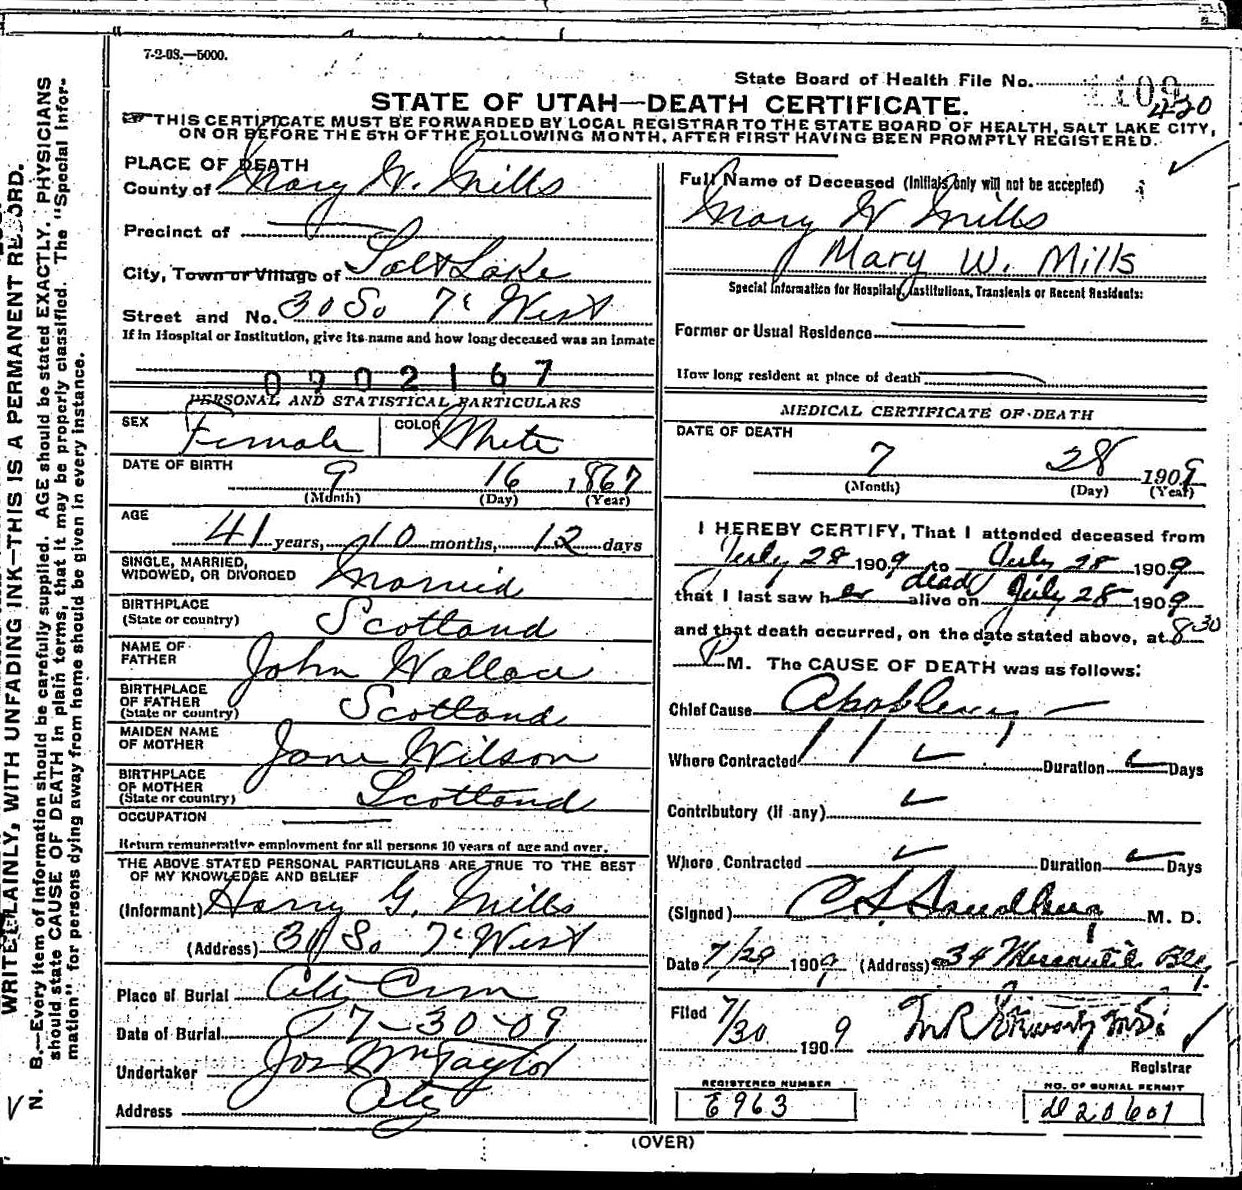 7-2-08.—5000.
State Board of Health File No. 1109
420
STATE OF UTAH—DEATH CERTIFICATE.
THIS CERTIFICATE MUST BE FORWARDED BY LOCAL REGISTRAR TO THE STATE BOARD OF HEALTH, SALT LAKE CITY,
ON OR BEFORE THE 5TH OF THE FOLLOWING MONTH, AFTER FIRST HAVING BEEN PROMPTLY REGISTERED.
PLACE OF DEATH
County of Mary W. Mills
Precinct of
City, Town or Village of Salt Lake
Street and No. 30 So 7th West
If in Hospital or Institution, give its name and how long deceased was an inmate
0902167
PERSONAL AND STATISTICAL PARTICULARS
SEX Female COLOR White
DATE OF BIRTH 9 16 1867
(Month) (Day) (Year)
AGE 41 years, 10 months, 12 days
SINGLE, MARRIED,
WIDOWED, OR DIVORCED Married
BIRTHPLACE
(State or country) Scotland
NAME OF
FATHER John Wallace
BIRTHPLACE
OF FATHER
(State or country) Scotland
MAIDEN NAME
OF MOTHER Jane Wilson
BIRTHPLACE
OF MOTHER
(State or country) Scotland
OCCUPATION
Return remunerative employment for all persons 10 years of age and over.
THE ABOVE STATED PERSONAL PARTICULARS ARE TRUE TO THE BEST
OF MY KNOWLEDGE AND BELIEF
(Informant) Harry G. Mills
(Address) 30 So 7th West
Place of Burial City Cem
Date of Burial 7-30-09
Undertaker Jos Wm Taylor
Address City
Full Name of Deceased (Initials only will not be accepted)
Mary W Mills
Mary W. Mills
Special Information for Hospitals, Institutions, Transients or Recent Residents:
Former or Usual Residence
How long resident at place of death
MEDICAL CERTIFICATE OF DEATH
DATE OF DEATH
7 28 1909
(Month) (Day) (Year)
I HEREBY CERTIFY, That I attended deceased from
July 28 1909 to July 28 1909
that I last saw her dead alive on July 28 1909
and that death occurred, on the date stated above, at 8 30
P M. The CAUSE OF DEATH was as follows:
Chief Cause Apoplexy
Where Contracted Duration Days
Contributory (if any)
Where Contracted Duration Days
(Signed) M. D.
Date 7/29 1909 (Address) 34 Mercantile Blg
Filed 7/30 1909 M R M.D.
Registrar
REGISTERED NUMBER
E963
NO. OF BURIAL PERMIT
d20601
(OVER)
WRITE PLAINLY, WITH UNFADING INK—THIS IS A PERMANENT RECORD.
N. B.—Every item of information should be carefully supplied. AGE should be stated EXACTLY. PHYSICIANS
should state CAUSE OF DEATH in plain terms, that it may be properly classified. The "Special Infor-
mation" for persons dying away from home should be given in every instance.